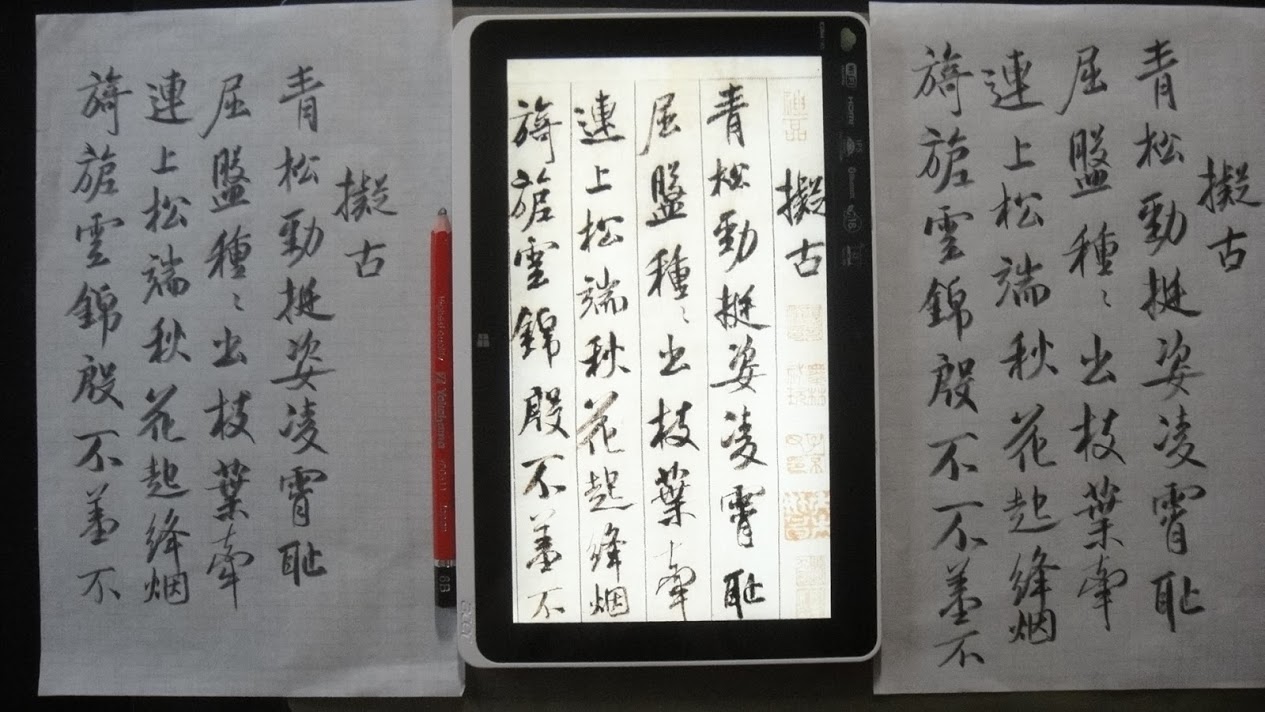 擬古
青松勁挺姿凌霄恥
屈盤種〻出枝葉牽
連上松端秋花起絳烟
旖旎雲錦殷不羞不
Yokohama
6B
acer
擬古
青松勁挺姿凌霄恥
屈盤種〻出枝葉牽
連上松端秋花起絳烟
旖旎雲錦殷不羞不
擬古
青松勁挺姿凌霄恥
屈盤種〻出枝葉牽
連上松端秋花起絳烟
旖旎雲錦殷不不羞不